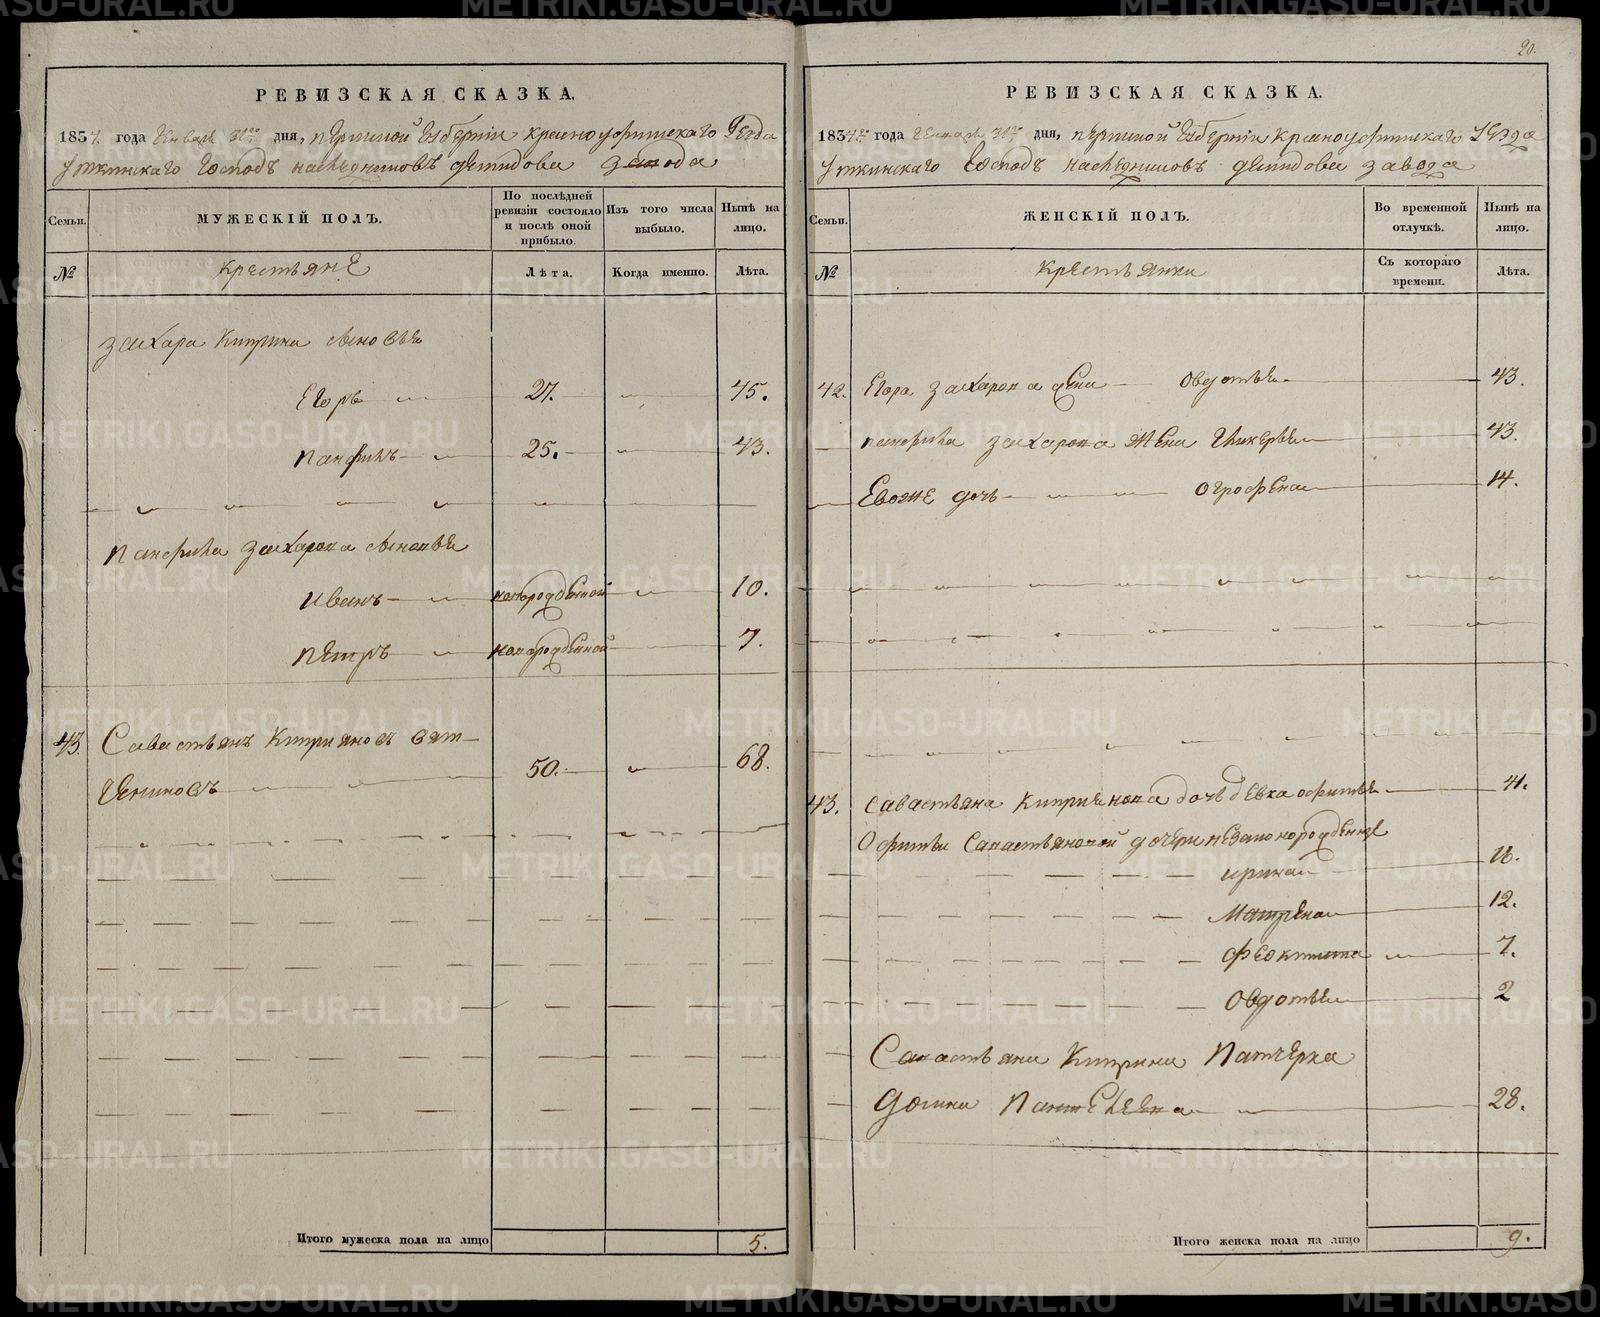 20.
РЕВИЗСКАЯ СКАЗКА.
1834 года Генваря 31го дня, пермской губерніи красноуфимскаго уезда
Уткинскаго Господъ наследниковъ демидова завода
Семьи.
МУЖЕСКІЙ ПОЛЪ.
По послѣдней ревизіи состояло и послѣ оной прибыло.
Изъ того числа выбыло.
Нынѣ на лицо.
№
крестьянЕ
Лѣта.
Когда именно.
Лѣта.
захара Киприна сыновья
Егоръ 27. 45.
Панфилъ 25. 43.
Панфила захарова сыновья
Иванъ новорожденной 10.
Петръ новорожденной 7.
43. Савастьянъ Киприяновъ вят-
чениновъ 50. 68.
Итого мужеска пола на лицо 5.
РЕВИЗСКАЯ СКАЗКА.
1834го года Генваря 31го дня, пермской губерніи красноуфимскаго уезда
Уткинскаго Господъ наследниковъ демидова завода
Семьи.
ЖЕНСКІЙ ПОЛЪ.
Во временной отлучкѣ.
Нынѣ на лицо.
№
крестьянки
Съ котораго времени.
Лѣта.
42. Егора захарова жена Овдотья 43.
панфила захарова жена Гликерья 43.
Евоже дочь Огрофена 14.
43. Савастьяна Киприянова дочь девка офимья 41.
Офимьи Савастьяновой дочери незаконорожденные
ирина 16.
Матрена 12.
феоктиста 7.
Овдотья 2
Савастьяна Киприна Патчерка
Домна Пантелеева 28.
Итого женска пола на лицо 9.
METRIKI.GASO-URAL.RU